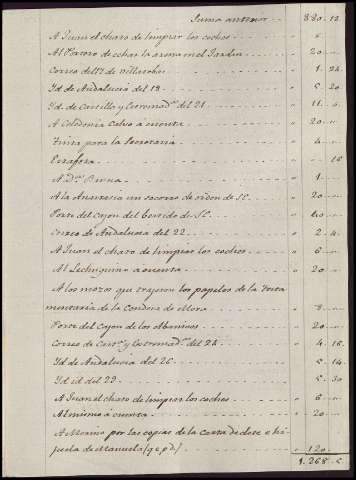 Suma anterior . . 880. 12
A Juan el charo de limpiar los coches . . " 6
Al Portero de echar la arena en el Jardin . . " 20
Correo del 17 de Villarobos . . " 1. 24
Yd de Andalucia del 18 . . " 5. 20
Yd. de Castilla y Estremad.ª del 21 . . " 11. 4
A Celedonia Calvo a cuenta . . " 20
Tinta para la Secretaria . . " 4
16
A D.ª . . " 1
A la Anastasia un socorro de orden de S.E. . . " 20
Porte del Cajon del Vestido de S.E. . . " 40
Correo de Andalucia del 22 . . " 2. 4
A Juan el charo de limpiar los coches . . " 6
Al Lechuguino a cuenta . . " 20
A los mozos que trageron los papeles de la Testa
mentaria de la Condesa de Mora . . " 8
Porte del Cajon de los Abanicos . . " 20
Correo de Cast.ª y Estremad.ª del 24 . . " 4. 16
Yd de Andalucia del 26 . . " 5. 14
Yd id del 29 . . " 5. 30
A Juan el charo de limpiar los coches . . " 6
Al mismo a cuenta . . " 20
A Merino por las copias de la Carta de dote e hi
juela de Manuela (q.e.p.d.) . . " 120
1.268. 6